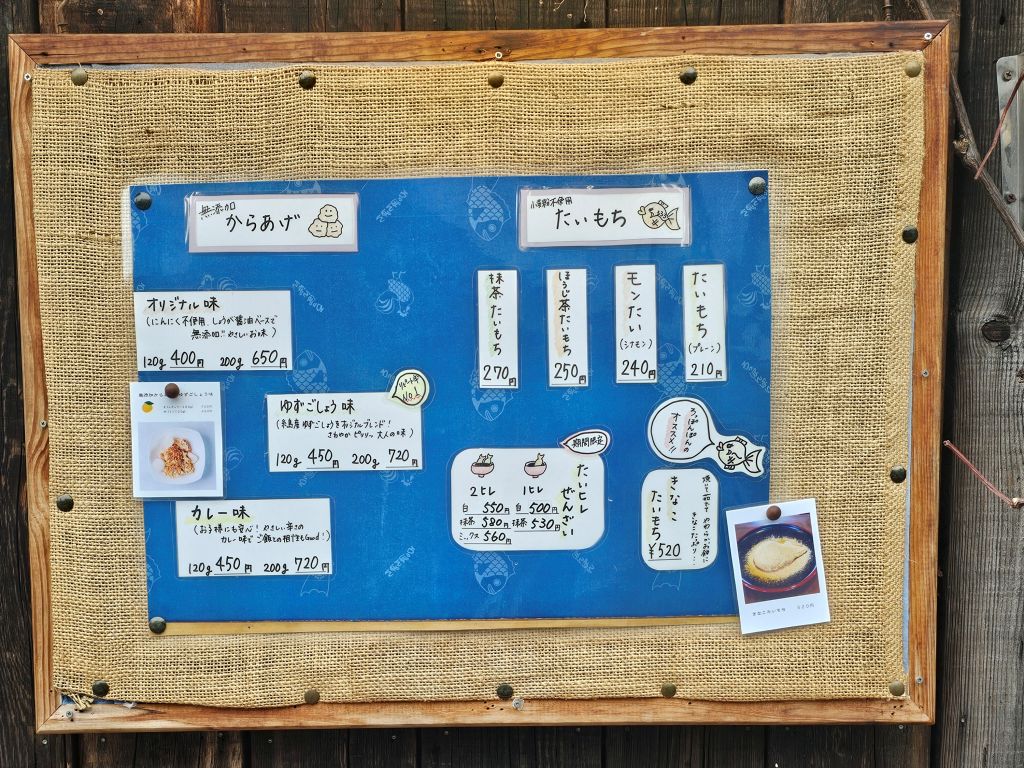 無添加
からあげ
オリジナル味
(にんにく不使用、しょうが醤油ベースで
無添加!!やさしいお味)
120g 400円 200g 650円
No.1
ゆずごしょう味
(糸島産ゆずごしょうをオリジナルブレンド!
さわやかピリリッ大人の味)
120g 450円 200g 720円
カレー味
(お子様にも安心!やさしい辛さの
カレー味でご飯との相性もGood!)
120g 450円 200g 720円
小麦粉不使用
たいもち
たいもち
(プレーン)
210円
モンたい
(シナモン)
240円
ほうじ茶たいもち
250円
抹茶たいもち
270円
期間限定
たいヒレ
ぜんざい
2ヒレ 1ヒレ
白 550円 白 500円
抹茶 580円 抹茶 530円
ミックス 560円
ろっぽんぽんの
オススメ!!
きなこ
たいもち
¥520
きなこたいもち 520円